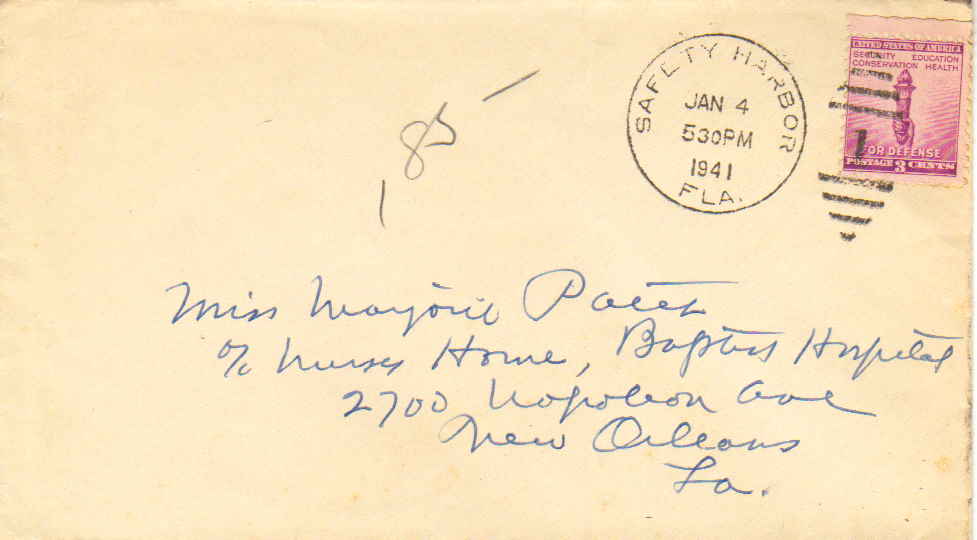 SAFETY HARBOR
JAN 4
530PM
1941
FLA.
UNITED STATES OF AMERICA
SECURITY EDUCATION
CONSERVATION HEALTH
1
FOR DEFENSE
POSTAGE 3 CENTS
Miss Marjorie
c/o Nurses Home, Baptist Hospital
2700 Napoleon Ave
New Orleans
La.